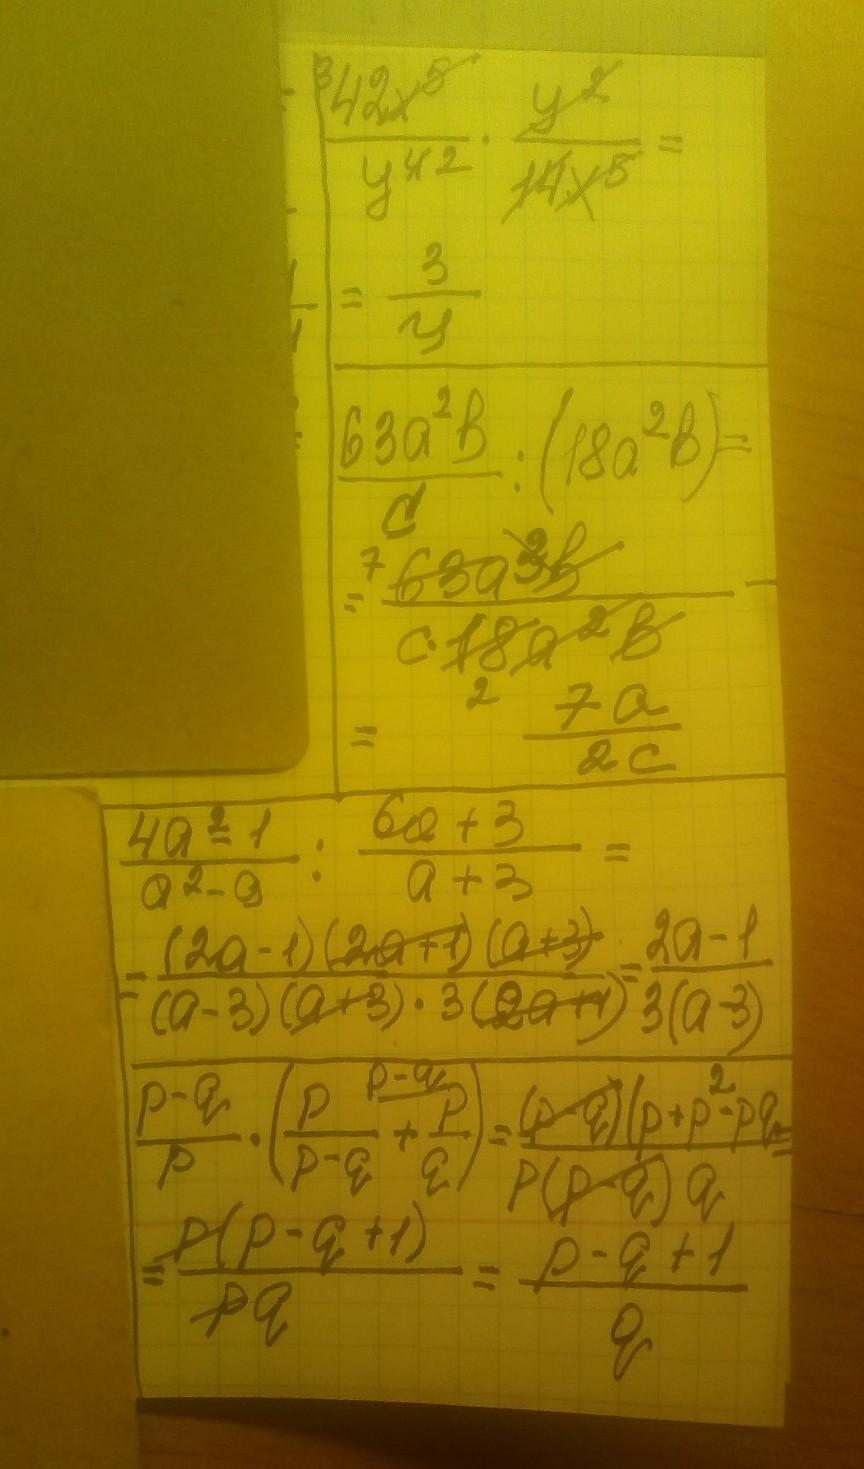 ³42x⁵/y⁴² · y²/14x⁵ =
= 3/y
63a²b/c : (18a²b) =
= ⁷63a³b/c·18a²b₂ =
= 7a/2c
4a²-1/a²-9 : 6a+3/a+3 =
= (2a-1)(2a+1)(a+3)/(a-3)(a+3)·3(2a+1) = 2a-1/3(a-3)
p-q/p · (p/p-q + p-q p/q) = (p-q)(p+p²-pq/p(p-q)q =
= p(p-q+1)/pq = p-q+1/q